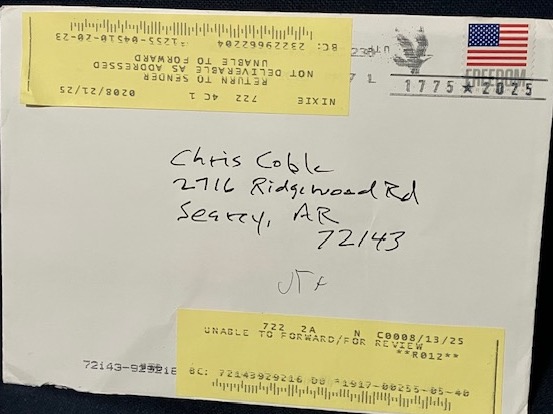 NIXIE 722 4C 1 0208/21/25
RETURN TO SENDER
NOT DELIVERABLE AS ADDRESSED
UNABLE TO FORWARD
BC: 23229662204 *1255-04510-20-23
FREEDOM
1775 ★ 2025
Chris Coble
2716 Ridgewood Rd
Searcy, AR
72143
722 2A N C0008/13/25
UNABLE TO FORWARD/FOR REVIEW
**R012**
BC: 72143929216 00 *1917-00255-05-40